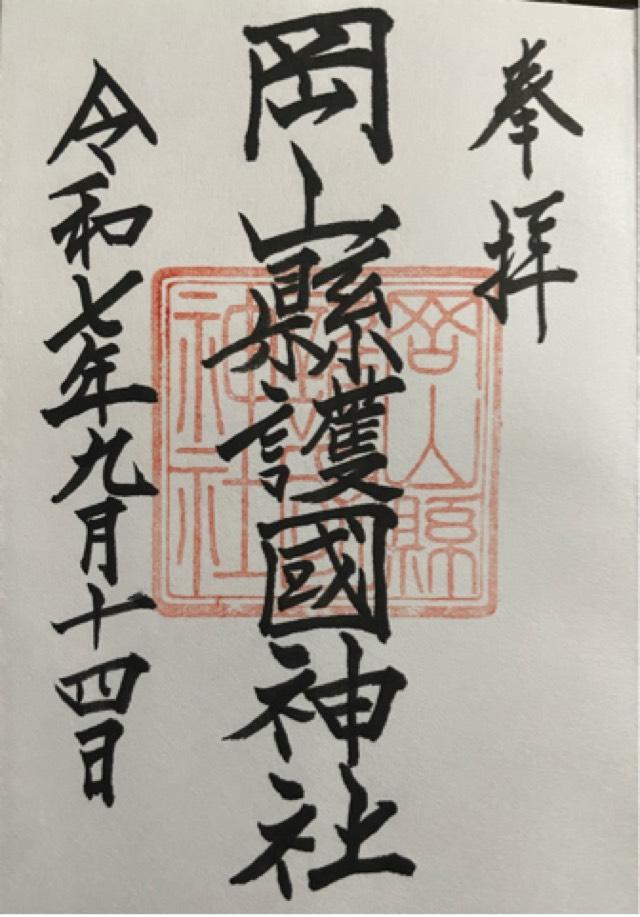 奉拝
岡山縣護國神社
令和七年九月十四日
岡山縣
護國
神社